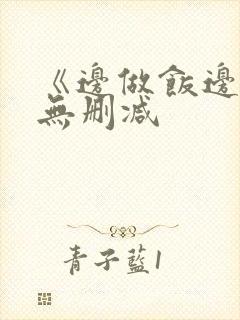 《邊做飯邊
無刪減
青子藍1